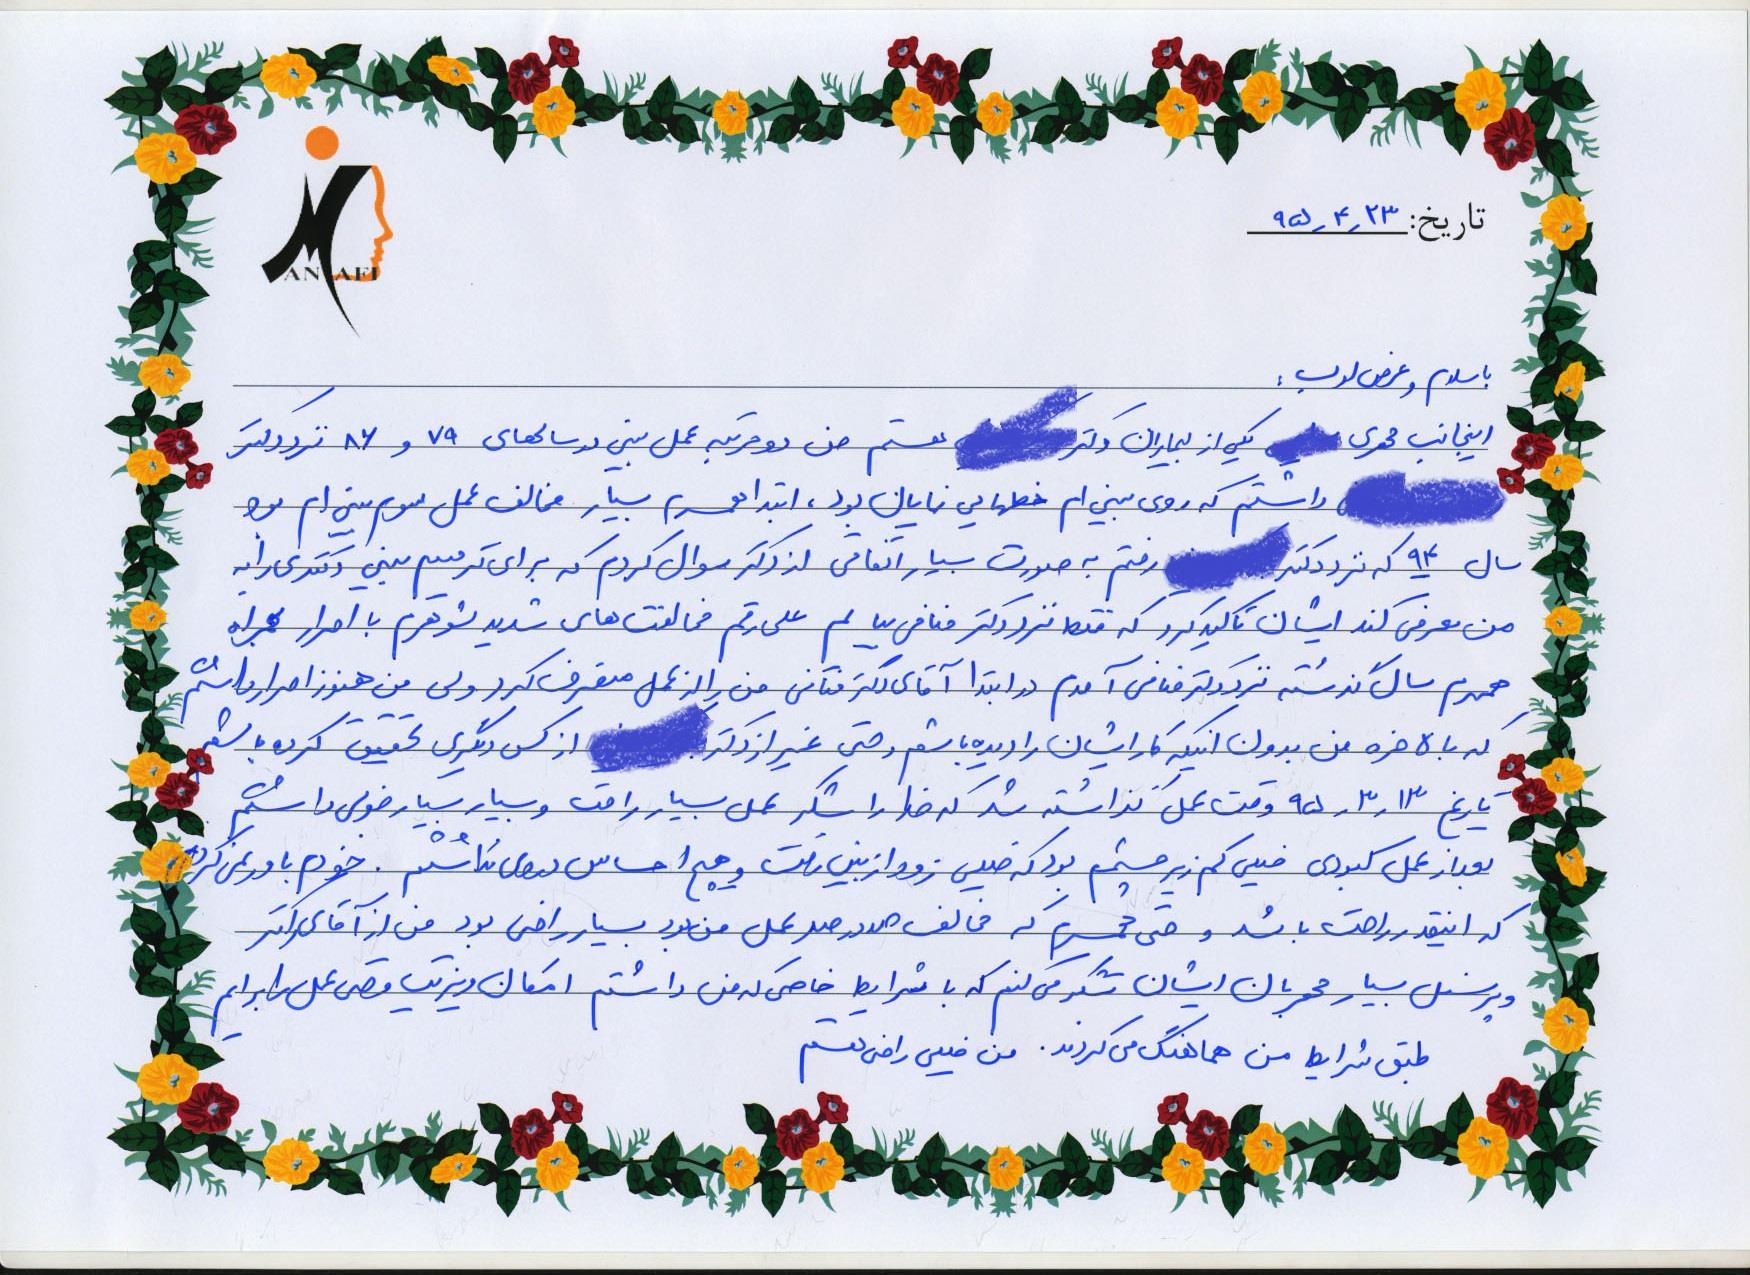 MANAFI
تاریخ: ۹۵٫۴٫۲۳
با سلام و عرض ادب :
اینجانب مهری یکی از بیماران دکتر هستم من دو مرتبه عمل بینی در سالهای ۷۹ و ۸۶ نزد دکتر
داشتم که روی بینی ام خطهایی نمایان بود، ابتدا همسرم بسیار مخالف عمل سوم بینی ام بود
سال ۹۴ که نزد دکتر رفتم به صورت بسیار اتفاقی از دکتر سوال کردم که برای ترمیم بینی دکتری را به
من معرفی کند ایشان تاکید کرد که فقط نزد دکتر منافی بیایم علی رقم مخالفت های شدید شوهرم با اصرار همراه
همسرم سال گذشته نزد دکتر منافی آمدم در ابتدا آقای دکتر منافی من را از عمل منصرف کرد ولی من هنوز اصرار داشتم
که بالاخره من بدون اینکه کار ایشان را دیده باشم و حتی غیر از دکتر از کس دیگری تحقیق کرده باشم
تاریخ ۹۵٫۳٫۱۳ وقت عمل گذاشته شد که خدا را شکر عمل بسیار راحت و بسیار بسیار خوبی داشتم
بعد از عمل کبودی خیلی کم زیر چشمم بود که خیلی زود از بین رفت و هیچ احساس دردی نداشتم . خودم باور نمی کردم
که اینقدر راحت باشد و حتی همسرم که مخالف صددرصد عمل من بود بسیار راضی بود من از آقای دکتر
و پرسنل بسیار مهربان ایشان تشکر می کنم که با شرایط خاصی که من داشتم امکان ویزیت و حتی عمل را برایم
طبق شرایط من هماهنگ می کردند. من خیلی راضی هستم